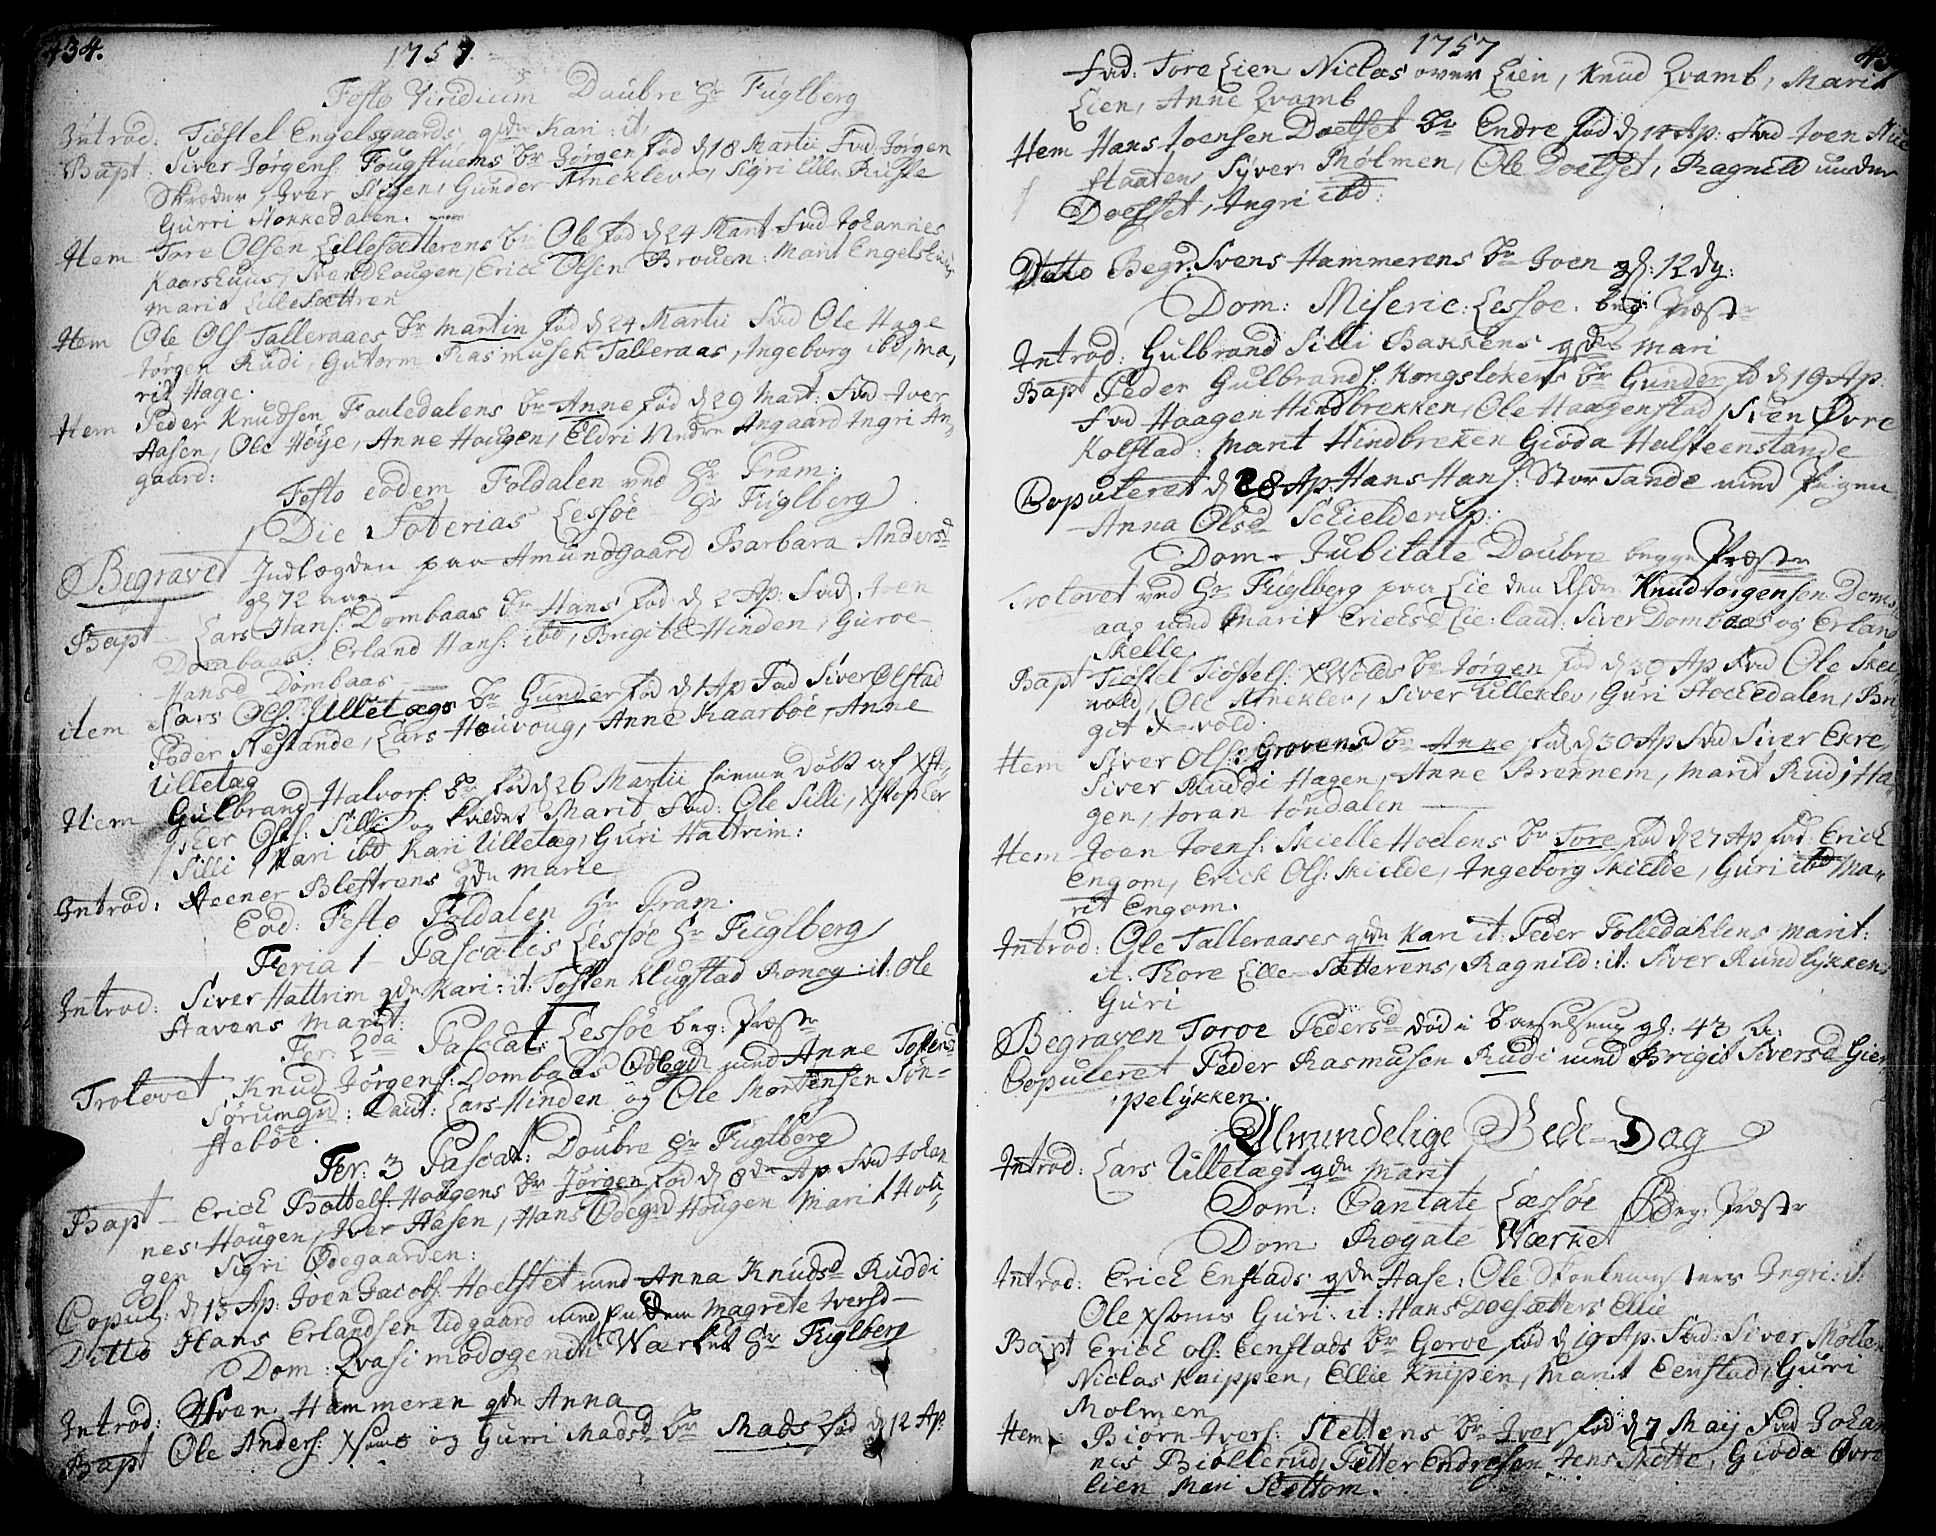 434.
1757.
Festo Viridium Daubre Hr Fuglberg
Introd. Tiøstel Engelsgaards qde Kari: it.
Bapt: Siver Jørgens: Fougstuens Br Jørgen fød d 18 Martii Fad: Jørgen
Skrøder, Iver Stgen, Gunder Arneklev, Sigri Lille Ruste
Gurri Hokkedalen.
Hem Tore Olsen Lillesætterens Br Ole fød d 24 Mart. Fad Johannes
Kaarshuus, Svend Hougen, Erick Olsen Brouen: Marit Engelshuus
Marit Lillesættren
Hem Ole Ols Talleraaes Br Martin fød d 24 Martii Fad Ole Hage
Jørgen Rudi, Gutorm Rasmusen Talleraas, Ingeborg ibd, Ma-
rit Hage.
Hem Peder Knudsen Fauledalens Br Anne fød d 29 Mart. Fad Iver
Aasen, Ole Høye, Anne Hougen, Eldri Nedre Angaard Ingri An-
gaard:
Festo eodem Foldalen ved Hr Pram:
Die Soterias Lessøe Hr Fuglberg
Begravet Indlægden paa Amundgaard Barbara Andersd
gl 72 aar
Bapt Lars Hans: Dombaas Br Hans fød d 2 Ap: Fad: Joen
Dombaas: Erland Hans: ibd, Brigite Hinden, Guroe
Hansd Dombaas
item Lars Ols: Ulletægs Br Gunder fød d 1 Ap Fad Siver Olstad
Peder Nestande, Lars Houvoug, Anne Kaarbøe, Anne
Ulletæg
Hem Gulbrand Halvors: Br fød d 26 Martii hiemme døbt af
Ols: Silli og kaldet Marit, Fad: Ole Silli, Xstopher
Silli, Kari ibd Kari Ulletæg, Guri Hattrim:
Introd: Steener Blestrens qde Marie
Eod: Festo Foldalen Hr Pram.
Feria 1 Pascatis Lessøe Hr Fuglberg
Introd: Siver Hattrim qde Kari: it: Tosten Klugstad Ronog: it: Ole
Stavens Marit:
Fer: 2da Pascat: Lessøe beg: Præster
Trolovet Knud Jørgens: Dombaas Ødegd med Anne Tostens
Sørumgrd: Caut: Lars Hinden og Ole Mortensen Tøn-
stebøe.
Fer: 3 Pascat: Doubre Hr Fuglberg
Bapt Erick Bottels: Hougens Br Jørgen fød d 8de Ap Fad Johan
nes Hougen, Iver Aasen, Hans Ødegrd Hougen Marit Hou-
gen Sigri Ødegaarden:
Copul: d 13 Ap: Joen Jacobs: Hoelstet med Anna Knudsd Ruddi
Ditto Hans Erlandsen Udgaard med Magrete Iversd
Dom: Qvasimodogenit: Wærket Hr Fuglberg
Introd: Sven Hammeren qde Anna
Bapt Ole Anders: Xsons og Gurri Madsd Br Mads fød d 12 Ap:
1757
Fad: Tore Lien Niclas over Lien, Knud Qvamb, Marit
Lien, Anne Qvamb
Hem Hans Joensen Doelset Br Endre fød d 12 Ap: Fad Joen
staaten, Syver Mølmen, Ole Doelset, Ragnild under
Doelset, Ingri ibd:
Ditto Begr: Svens Hammerens Br Joen gl: 12 dg:
Dom: Miseric: Lessøe. beg: Præster
Introd: Gulbrand Silli Bakkens qde Mari
Bapt Peder Gulbrands: Kongslokens Br Gunder fød d 19 Ap:
Fad Haagen Hindbrekken, Ole Haagenstad, Sven Øvre
Kolstad: Marit Hindbreken Gioda Halsteenstande
Copuleret d 28 Ap: Hans Hans: Stor Tande med Pigen
Anna Olsd Schielderup:
Dom: Jubilate Doubre begge Præster
Trolovet ved Hr Fuglberg paa Lie den Knud Jørgensen Domb-
aas med Marit Ericksd Lie: Caut: Siver Dombaas og Erland
Skelle.
Bapt Tiøstel Tiøstels: XWolds Br Jørgen fød d 30 Ap Fad Ole Skei
vold, Ole Arneklev, Siver Ulleklev, Guri Hockedalen, Bri-
git X-vold
Hem Siver Ols: Grovens Br Anne fød d 30 Ap Fad Siver Ekre,
Siver Ruddi Hagen, Anne Brennem, Marit Rudi Ha-
gen, Joran Jondalen
Hem Joen Joens: Skielle Hoelens Br Tore fød d 27 Ap Fad. Erick
Engom, Erick Ols: Skielde, Ingeborg Skielde, Guri ibd Ma-
rit Engom.
Introd: Ole Talleraases qde Kari it: Peder Folledahlens Marit:
it: Thore Lille-Sætterens, Ragnild: it: Siver Rundlykkens
Guri
Begraven Toroe Pedersd død i Barselseng gl: 43 Ar:
Copuleret Peder Rasmusen Rudi med Brigit Siversd Gier-
pelykken.
Almindelige Bede-Dag
Introd: Lars Ulletægt qde Marit
Dom: Cantate Læssøe Beg: Præster
Dom: Rogate Wærket
Introd: Erick Enstads qde Aase: Ole Ingri: it:
Ole Xsons Guri: it: Hans Doesetters Ellie
Bapt Erick Ols: Eenstads Br Goroe fød d 19 Ap: Fad: Siver Mølmen
Niclas Knippen, Ellie Knipen, Marit Eenstad, Guri
Molmen
Hem Biørn Ivers: Slettens Br Iver fød d 7 Maij Fad Johan
nis Biøllerud, Petter Endresen Jens Skotte, Gioda Øvre
Lien Mari Slettom.